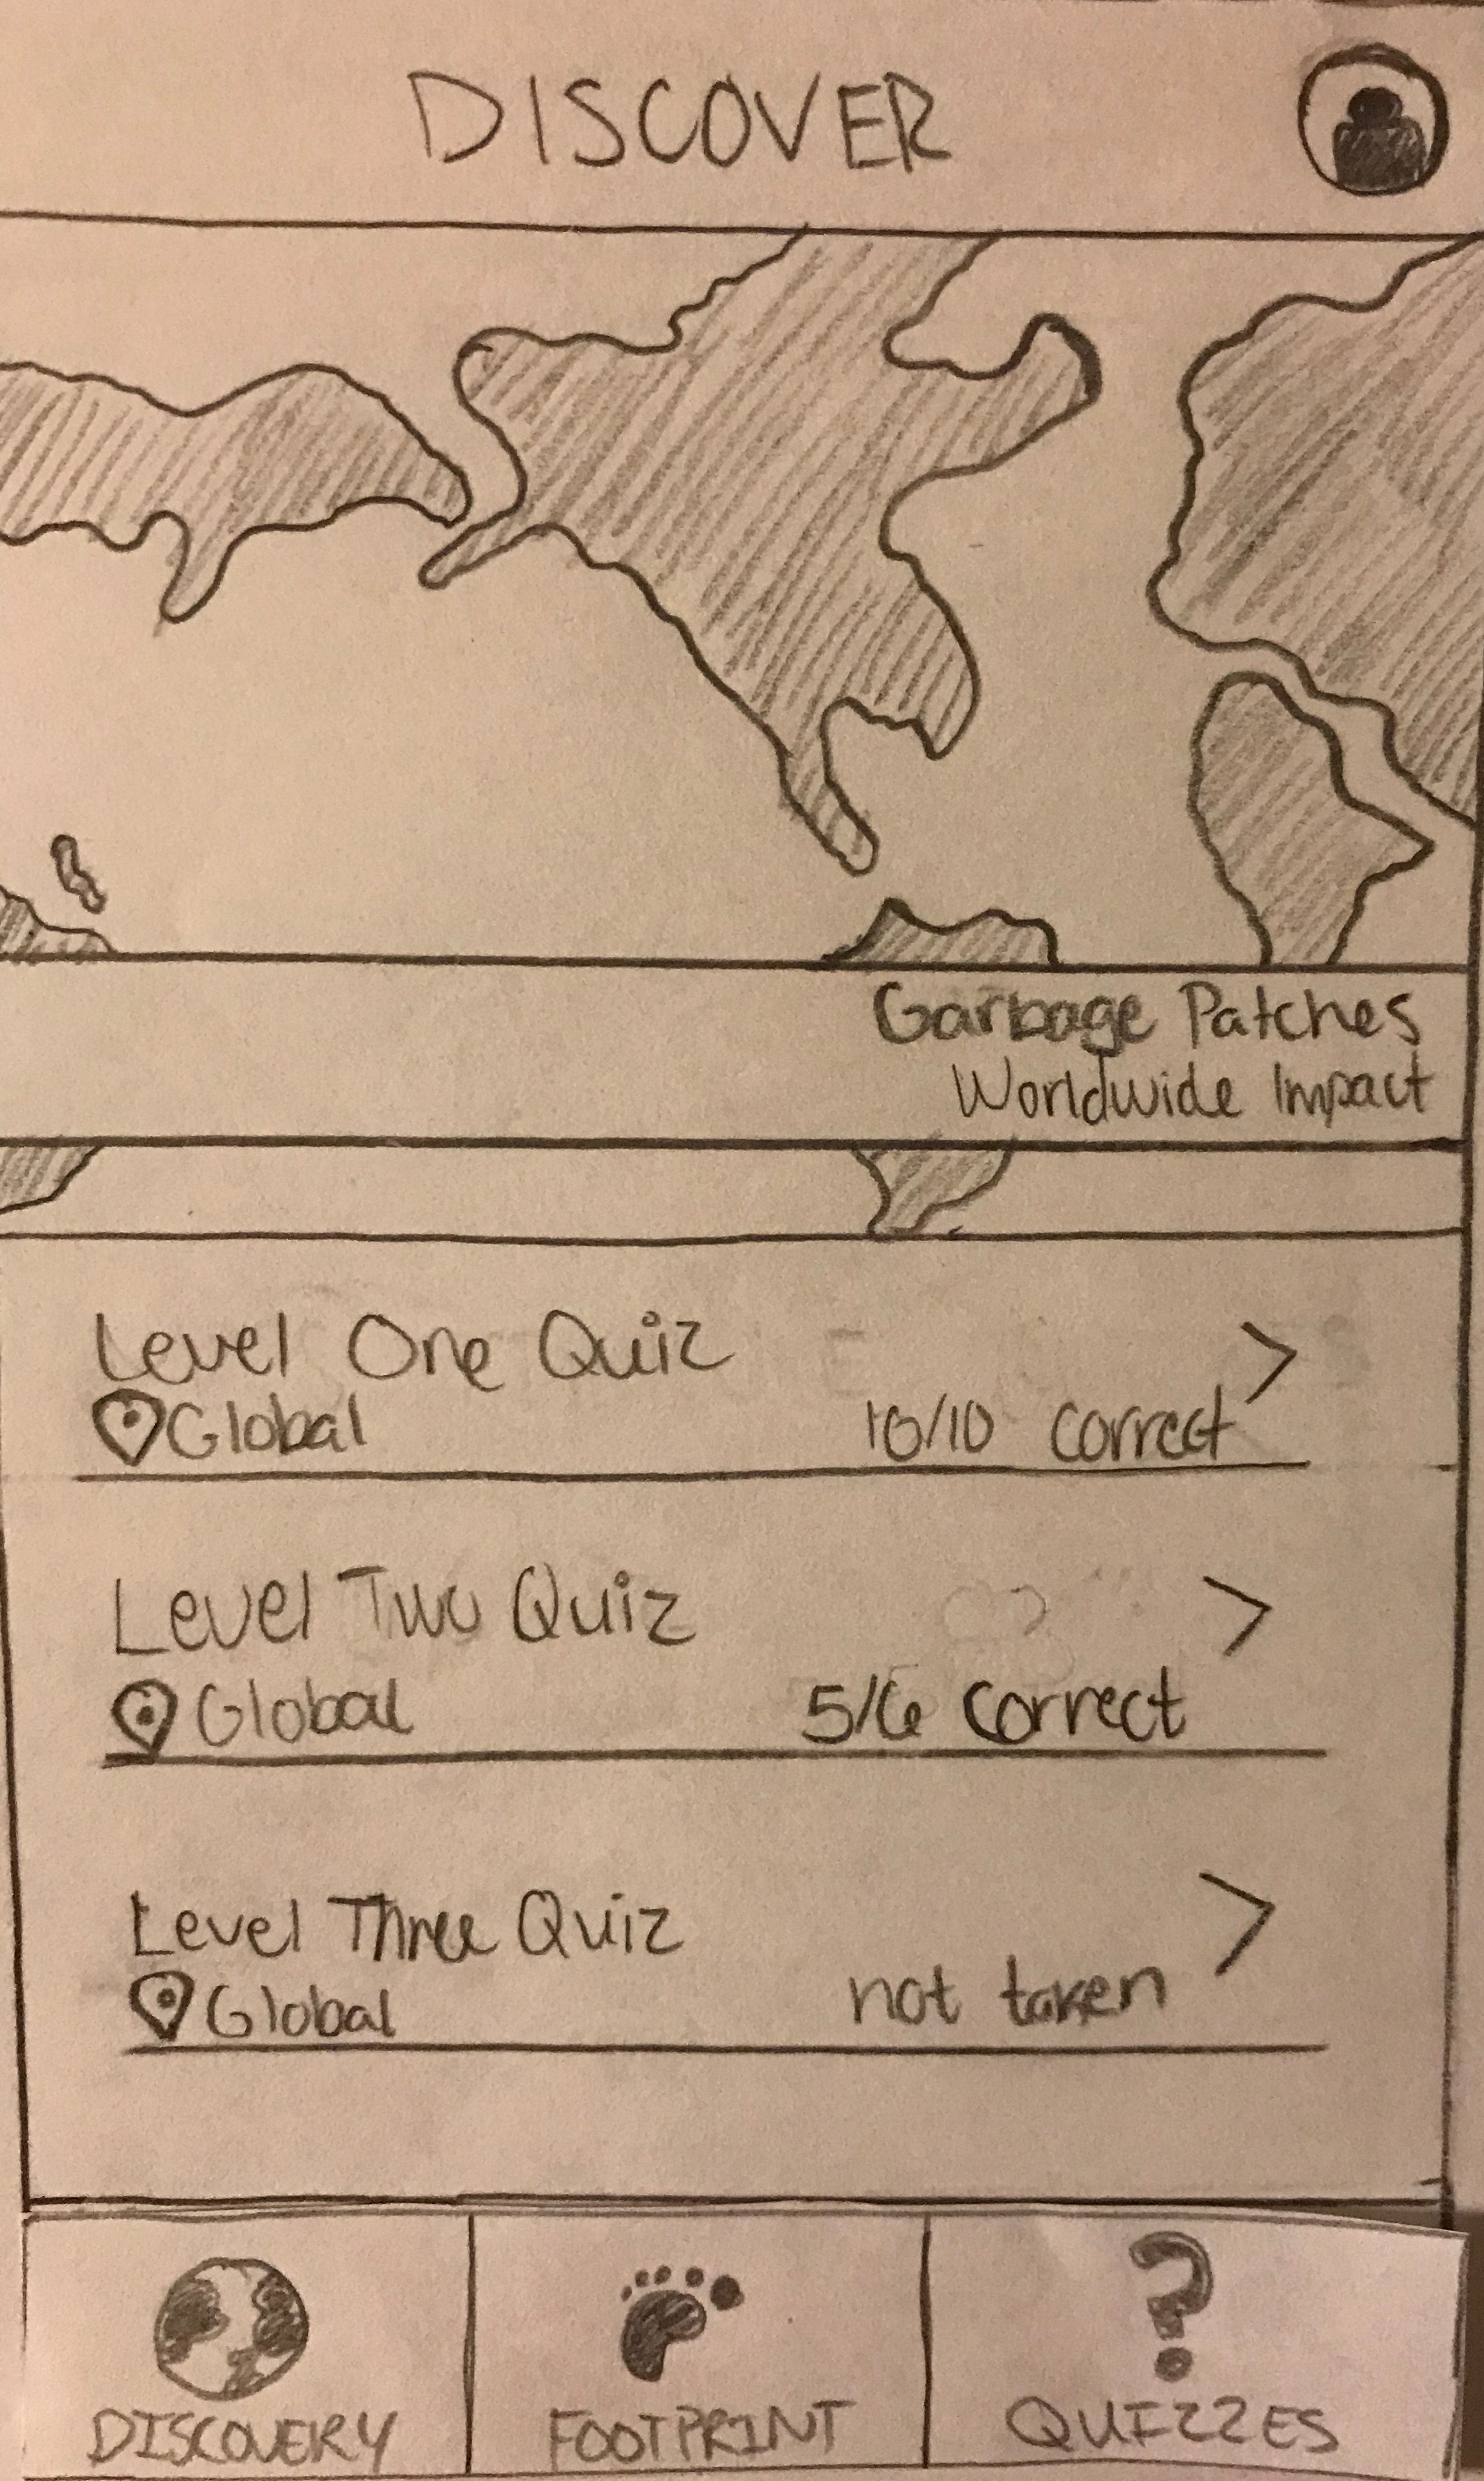 DISCOVER
Garbage Patches
Worldwide Impact
Level One Quiz
Global 10/10 correct
Level Two Quiz
Global 5/6 correct
Level Three Quiz
Global not taken
DISCOVERY FOOTPRINT QUIZZES